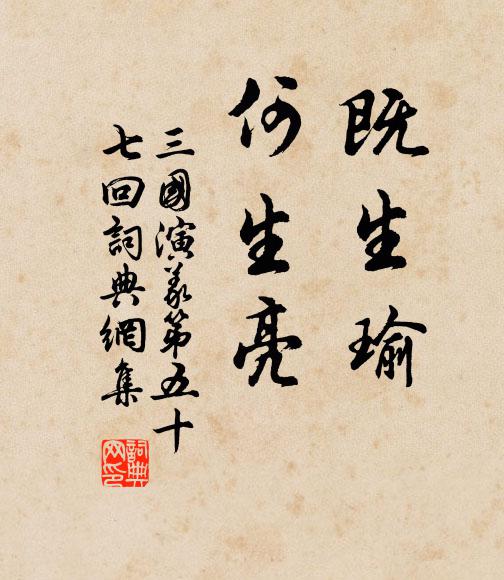 既生瑜
何生亮
三國演義第五十
七回詞典網集
詞典
网印